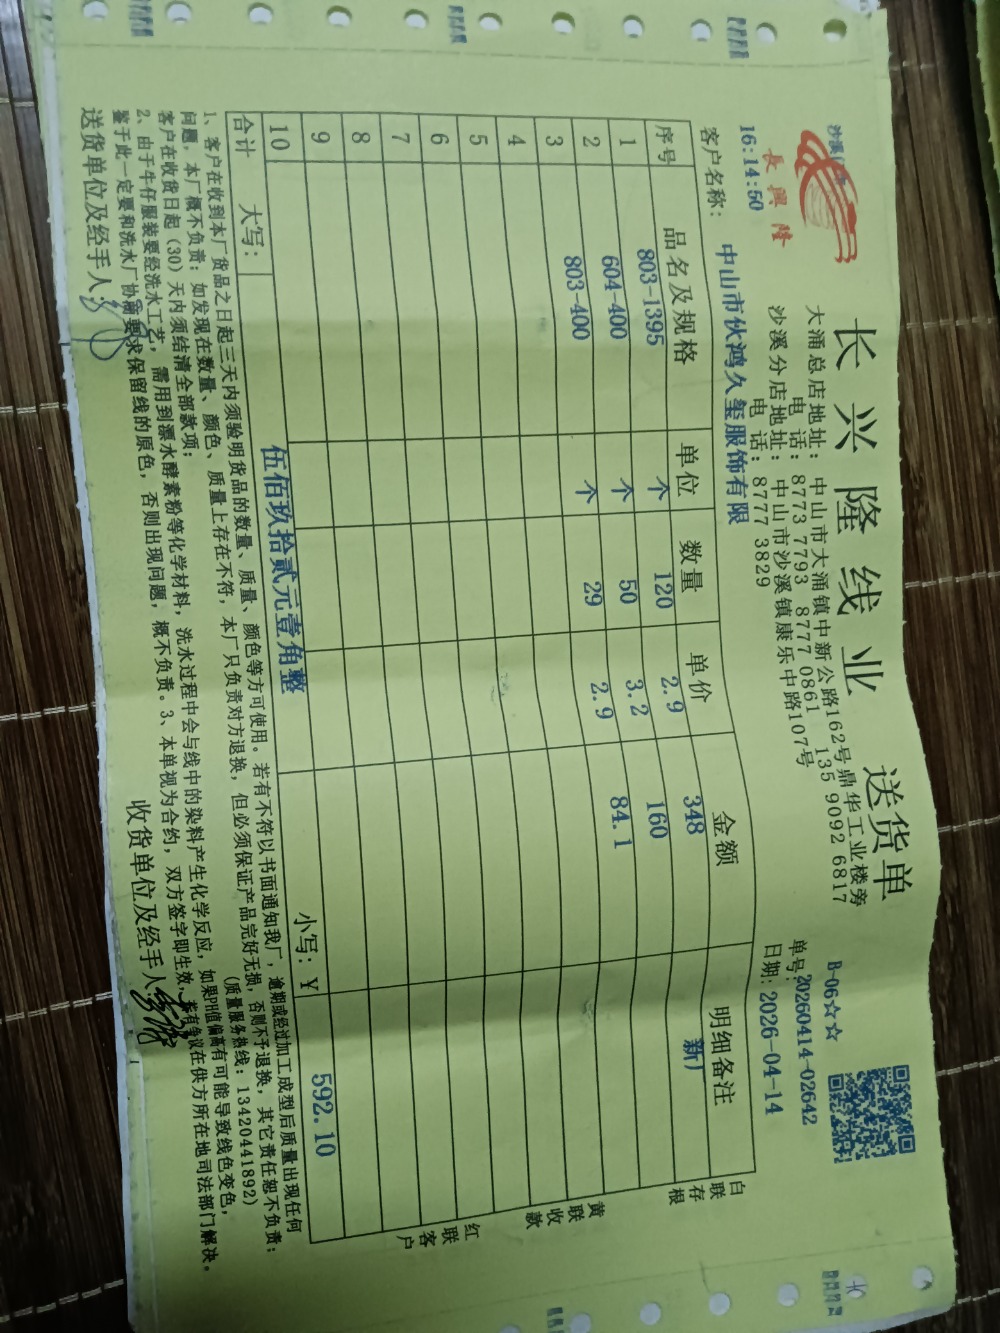 長興隆
长兴隆线业 送货单
大涌总店地址：中山市大涌镇中新公路162号鼎华工业楼旁
电话：8773 7793 8777 0861 135 9092 6817
沙溪分店地址：中山市沙溪镇康乐中路107号
电话：8777 3829
B-06☆☆
单号：20260414-02642
日期：2026-04-14
16:14:50
客户名称：中山市伙鸿久玺服饰有限
序号 品名及规格 单位 数量 单价 金额 明细备注
1 803-1395 个 120 2.9 348 新厂
2 604-400 个 50 3.2 160
3 803-400 个 29 2.9 84.1
4
5
6
7
8
9
10
合计 大写：伍佰玖拾贰元壹角整 小写：¥ 592.10
白联存根
黄联收款
红联客户
1、客户在收到本厂货品之日起三天内须验明货品的数量、质量、颜色等方可使用。若有不符以书面通知我厂，逾期或经过加工成型后质量出现任何
问题，本厂概不负责；如发现在数量、颜色、质量上存在不符，本厂只负责对方退换，但必须保证产品完好无损，否则不予退换，其它责任恕不负责；
客户在收货日起（30）天内须结清全部款项； （质量服务热线：13420441892）
2、由于牛仔服装要经洗水工艺，需用到漂水酵素粉等化学材料，洗水过程中会与线中的染料产生化学反应，如果PH值偏高有可能导致线色变色，
鉴于此一定要和洗水厂协商要求保留线的原色，否则出现问题，概不负责。3、本单视为合约，双方签字即生效，若有争议在供方所在地司法部门解决。
送货单位及经手人： 收货单位及经手人：